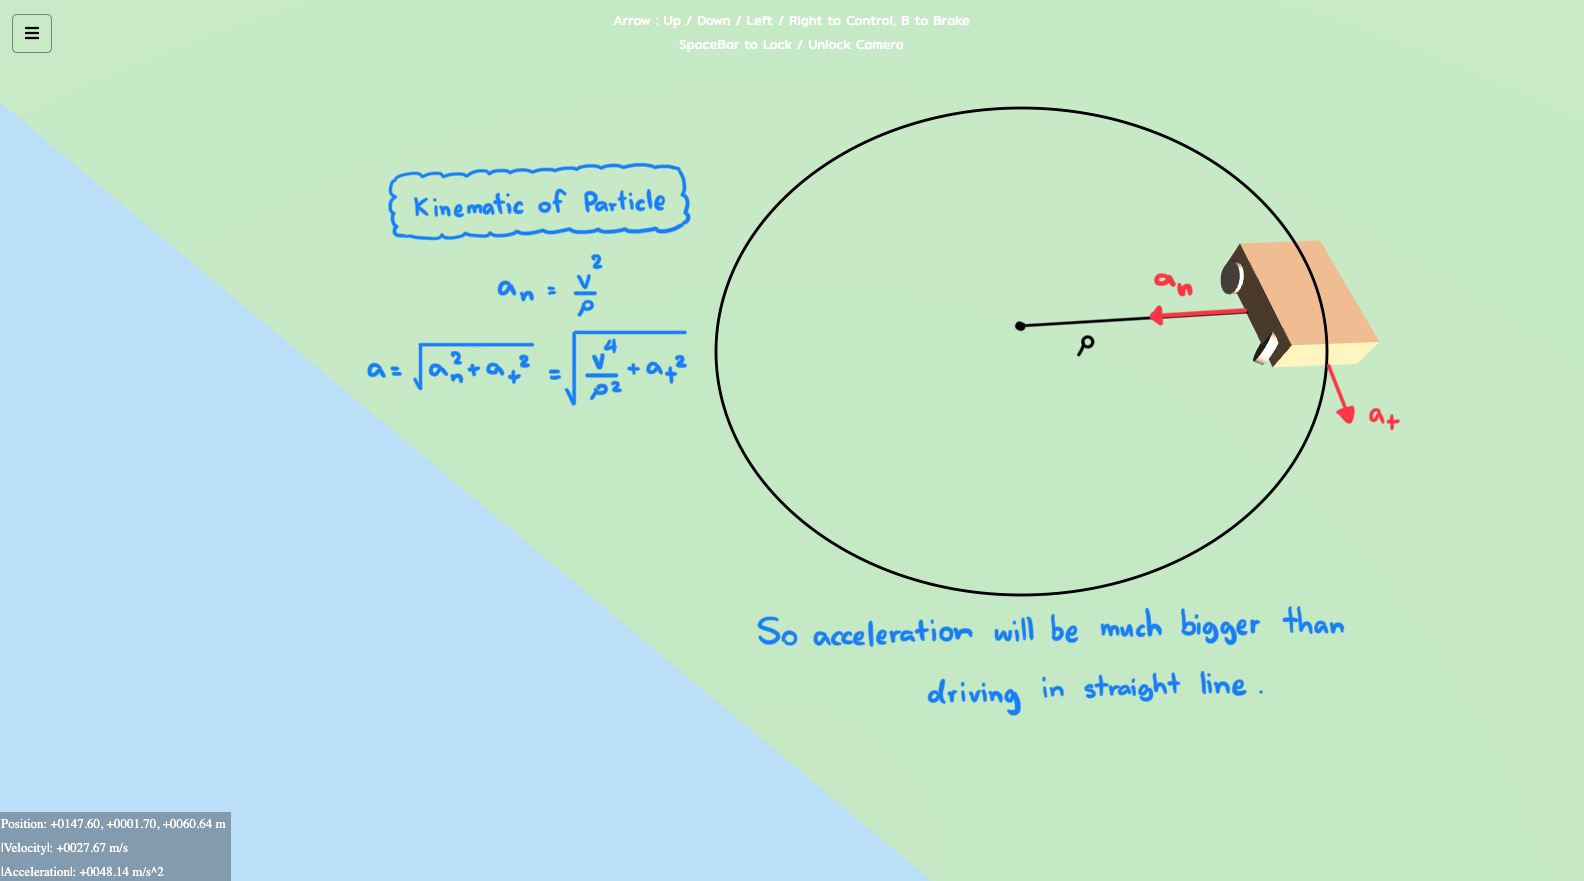 Arrow : Up / Down / Left / Right to Control, B to Broke
SpaceBar to Lock / Unlock Camera
Kinematic of Particle
aₙ = v²/ρ
a = √(aₙ² + aₜ²) = √(v⁴/ρ² + aₜ²)
aₙ
ρ
aₜ
So acceleration will be much bigger than
driving in straight line.
Position: +0147.60, +0001.70, +0060.64 m
|Velocity|: +0027.67 m/s
|Acceleration|: +0048.14 m/s^2